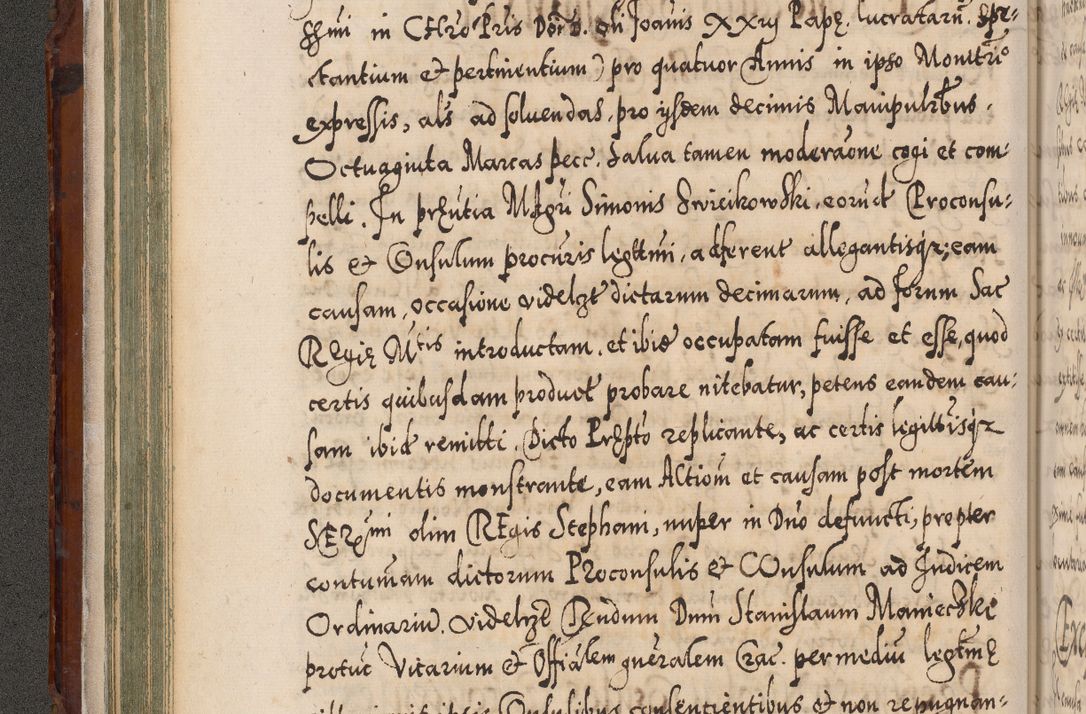 ssimi in Chro Pris Dni D. Joanis XXIIJ Papę. lucratarū. Spe-
ctantium et pertinentium) pro quatuor Annis in ipso Monitrio
expressis, als ad soluendas pro ijsdem decimis Manipulrbus.
Octuaginta Marcas pecc. Salua tamen moderaone cogi et com-
pelli. In prntia Mgri Simonis Swieikowski, eorund Proconsu-
lis et Consulum procuris legttmi, adferent allegantisqz; eam
causam, occasione videlzt dictarum decimarum, ad forum Sac
Regię Mtis introductam, et ibid occupatam fuisse et esse, quod
certis quibusdam product probare nitebatur, petens eandem cau-
sam ibid remitti. Dicto Prepto replicante, ac certis legittisqz
documentis monstrante, eam Actiom et causam post mortem
Sermi olim Regis Stephani, nuper in Dno defuncti, propter
contumam dictorum Proconsulis et Consulum ad Judicem
Ordinariū. videlzt Rendum Dnm Stanislaum Manieczkę
protuc Vicarium et Offialem gneralem Crac. per mediū legtmę
Consulibus consentientibus et non repugnan-